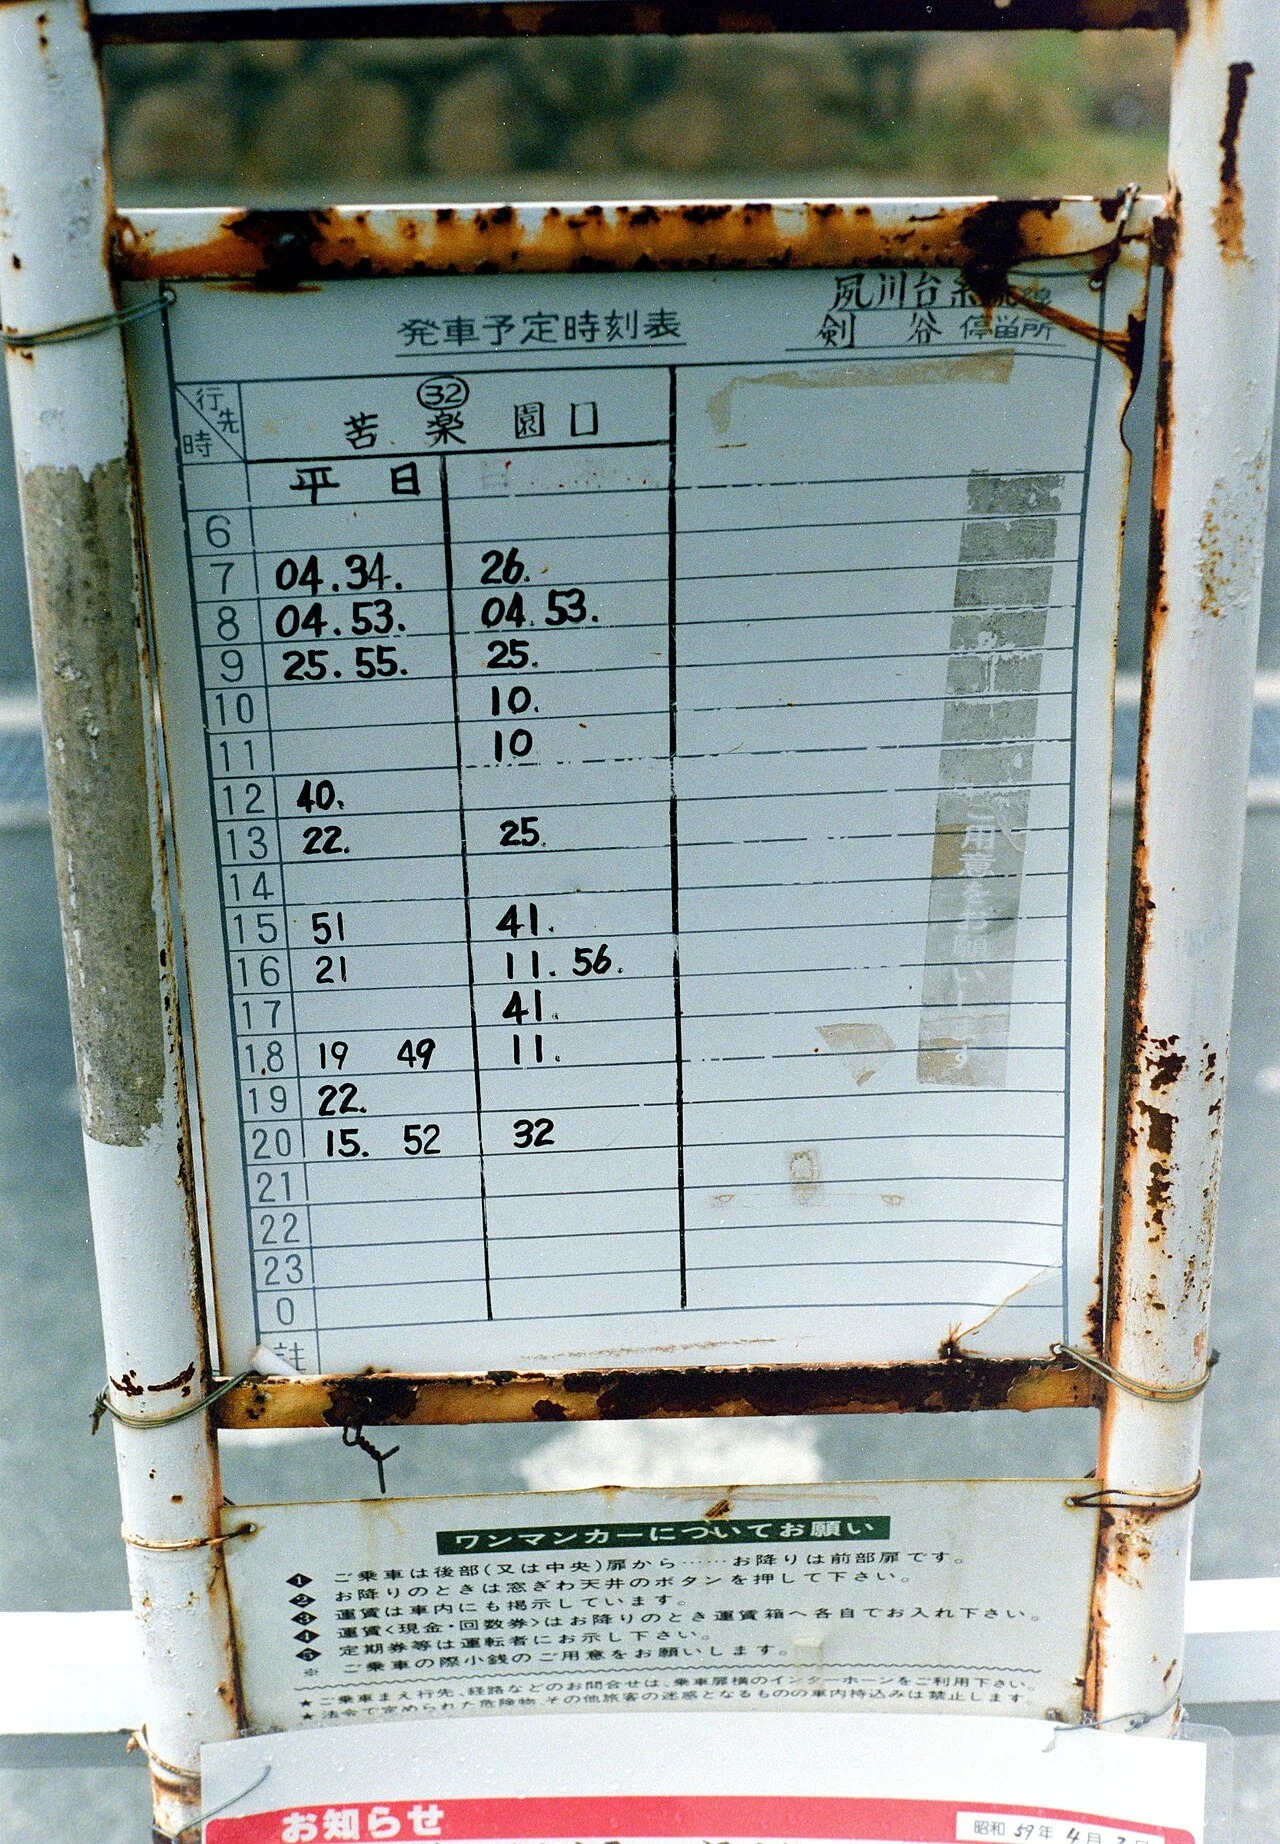 夙川台系統線
剣 谷 停留所
発車予定時刻表
行先
時
㉜
苦 楽 園 口
平 日
6
7 04.34. 26.
8 04.53. 04.53.
9 25.55. 25.
10 10.
11 10
12 40.
13 22. 25.
14
15 51 41.
16 21 11.56.
17 41.
18 19 49 11.
19 22.
20 15. 52 32
21
22
23
0
註
ご用意をお願いします
ワンマンカーについてお願い
1 ご乗車は後部(又は中央)扉から……お降りは前部扉です。
2 お降りのときは窓ぎわ天井のボタンを押して下さい。
3 運賃は車内にも掲示しています。
4 運賃<現金・回数券>はお降りのとき運賃箱へ各自でお入れ下さい。
5 定期券等は運転者にお示し下さい。
※ ご乗車の際小銭のご用意をお願いします。
★ご乗車まえ行先、経路などのお問合せは、乗車扉横のインターホーンをご利用下さい。
★法令で定められた危険物、その他旅客の迷惑となるものの車内持込みは禁止します。
お知らせ
昭和59年4月